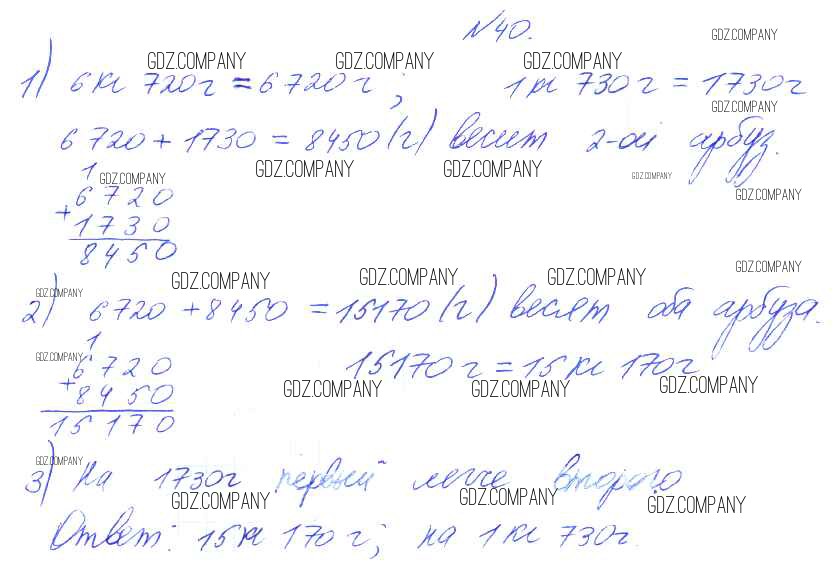 №40.
GDZ.COMPANY
GDZ.COMPANY GDZ.COMPANY GDZ.COMPANY
1) 6 кг 720 г = 6720 г; 1 кг 730 г = 1730 г
GDZ.COMPANY
6720 + 1730 = 8450 (г) весит 2-ой арбуз.
GDZ.COMPANY GDZ.COMPANY
1
GDZ.COMPANY GDZ.COMPANY
6720
GDZ.COMPANY
+
1730
8450
GDZ.COMPANY GDZ.COMPANY GDZ.COMPANY GDZ.COMPANY
GDZ.COMPANY
2) 6720 + 8450 = 15170 (г) весят оба арбуза.
1
GDZ.COMPANY
6720 15170 г = 15 кг 170 г
+
8450
GDZ.COMPANY GDZ.COMPANY GDZ.COMPANY
15170
GDZ.COMPANY
3) На 1730 г первый легче второго
GDZ.COMPANY GDZ.COMPANY GDZ.COMPANY
Ответ: 15 кг 170 г; на 1 кг 730 г.